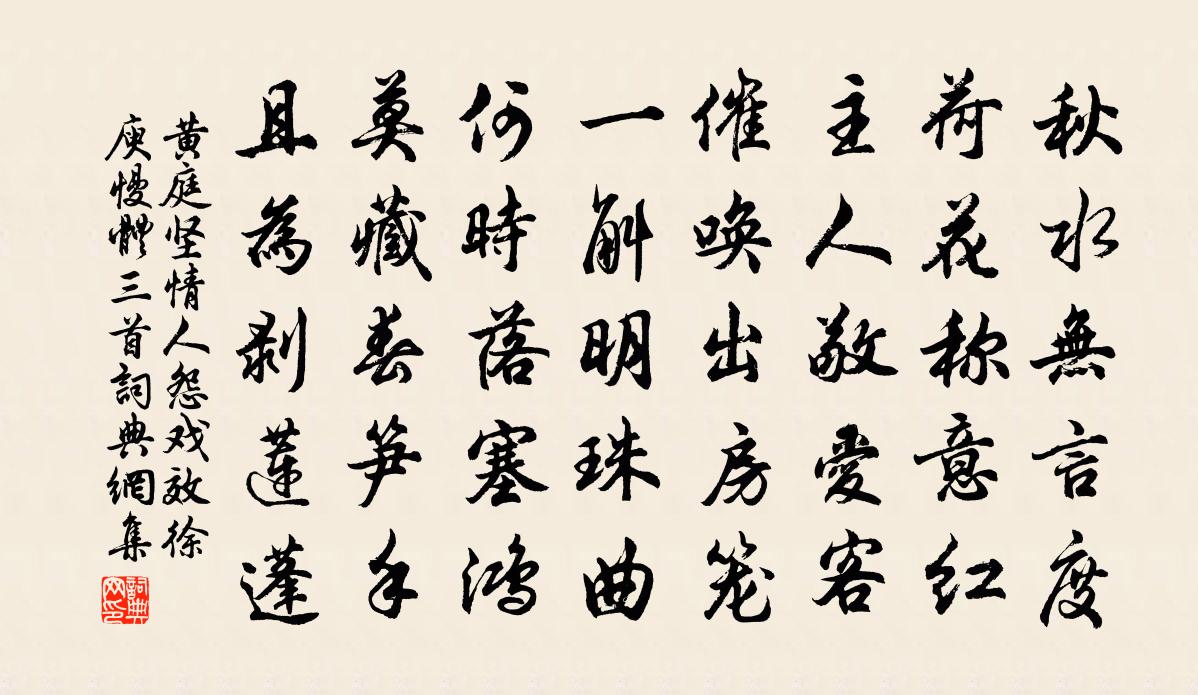 秋水無言度
荷花称意红
主人敬愛客
催唤出房笼
一斛明珠曲
何時落塞鴻
莫藏春笋手
且為剥蓮蓬
黄庭坚情人怨戏效徐
庾慢體三首詞典網集
詞典网印